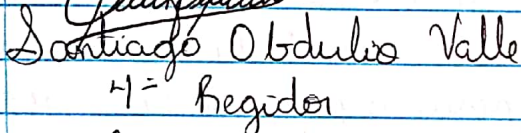 Santiago Obdulio Valle
4= Regidor